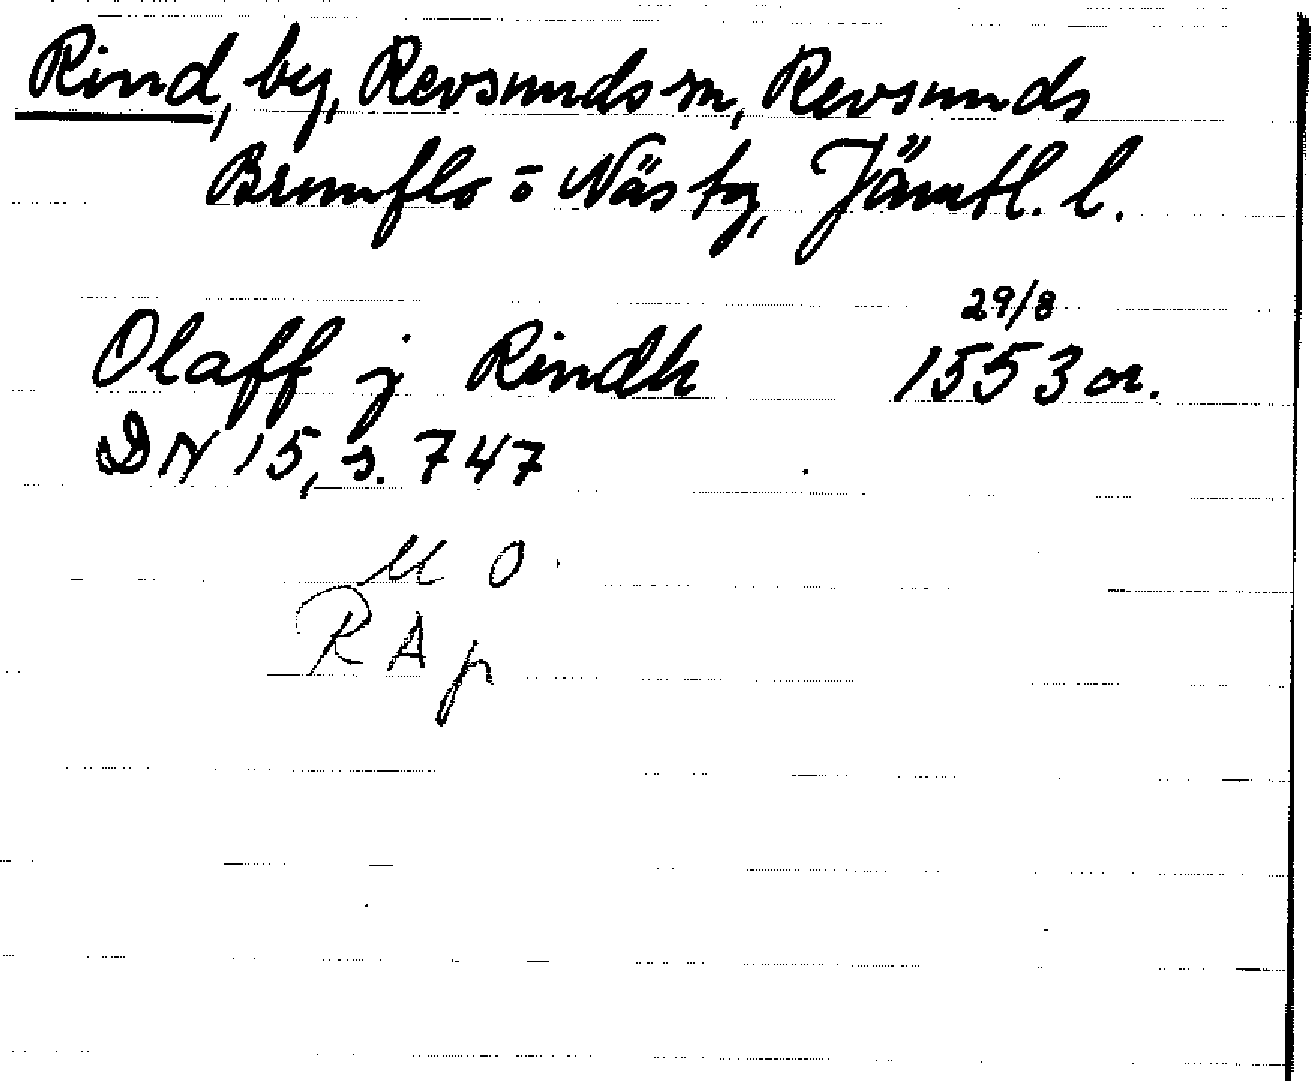 Rind, by, Revsunds sn, Revsunds
Brunflo o Näs tg, Jämtl. l.
29/8
Olaff j Rindh 1553 or.
DN 15, s. 747
U O
R A p